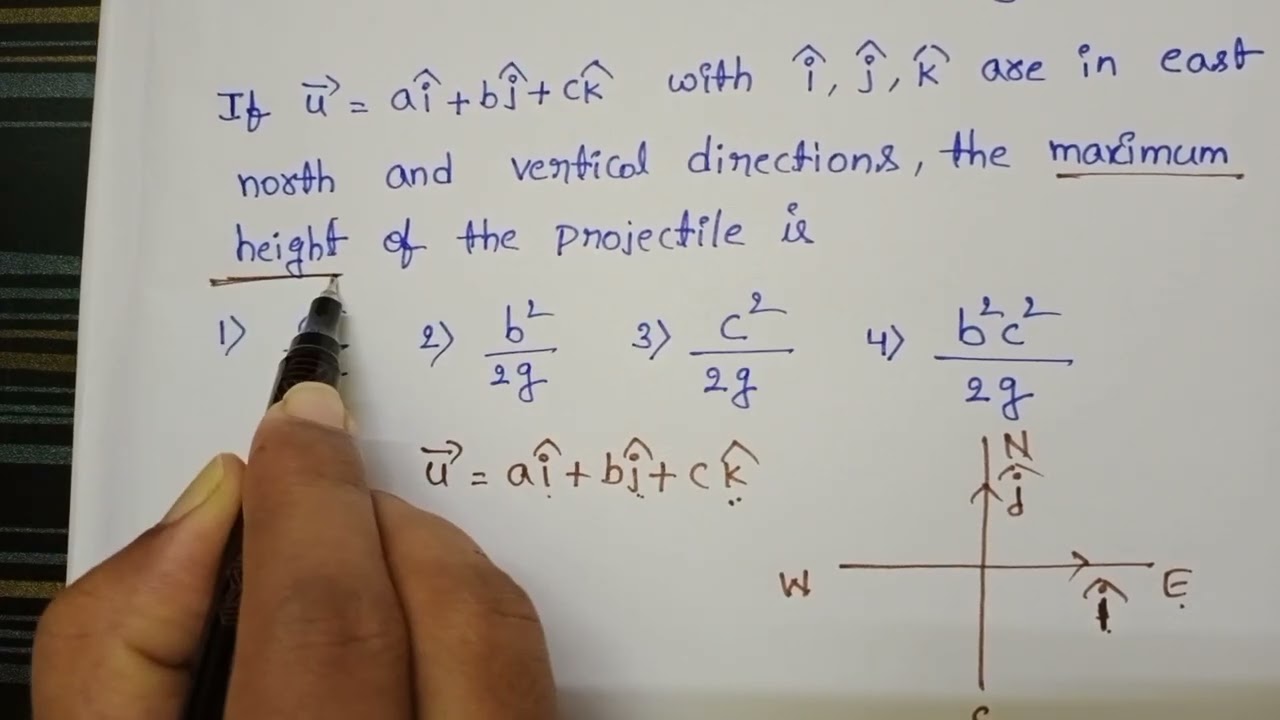 If u⃗ = aî + bĵ + ck̂ with î, ĵ, k̂ are in east
north and vertical directions, the maximum
height of the projectile is
1) 2) b²/2g 3) c²/2g 4) b²c²/2g
u⃗ = aî + bĵ + ck̂
N
ĵ
W E
î